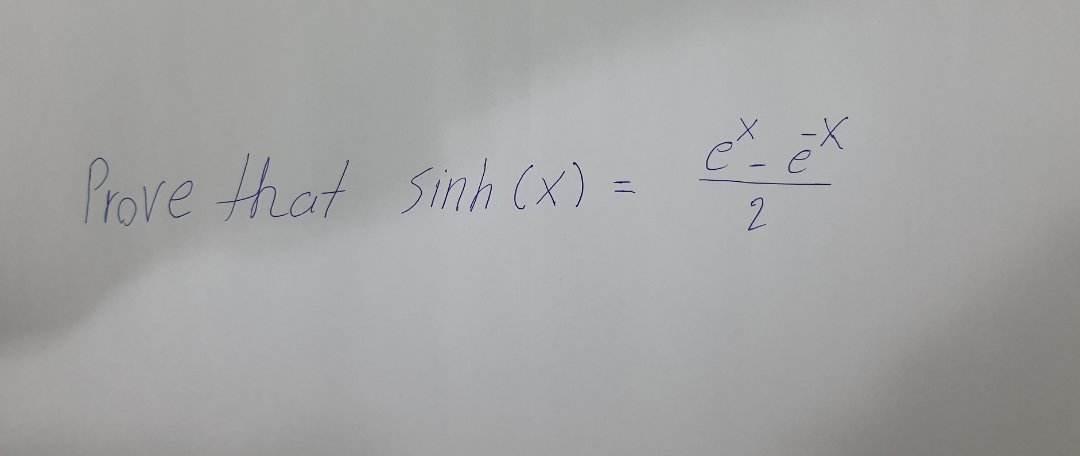 Prove that sinh (x) = \frac{e^x - e^{-x}}{2}